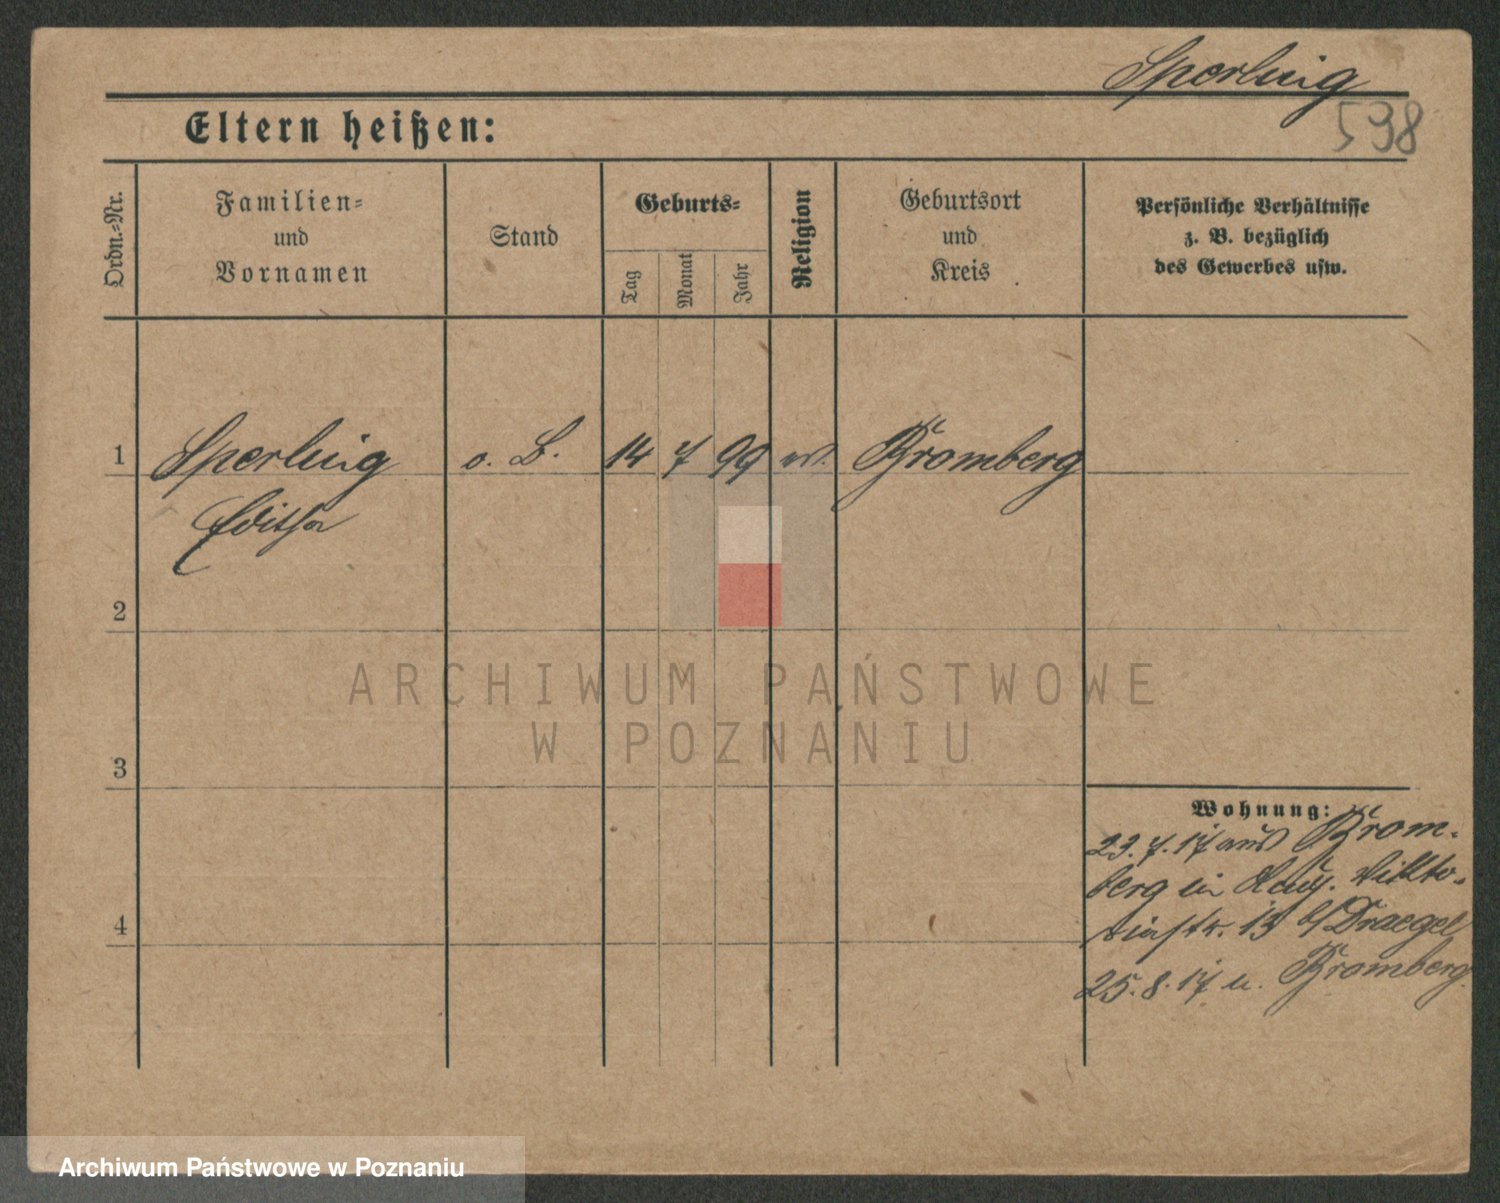 Sperling
598
Eltern heißen:
Ordn.-Nr.
Familien-
und
Vornamen
Stand
Geburts-
Tag
Monat
Jahr
Religion
Geburtsort
und
Kreis
Persönliche Verhältnisse
z. B. bezüglich
des Gewerbes usw.
1
Sperling o. B. 14 7 99 ev. Bromberg
Editha
2
ARCHIWUM PAŃSTWOWE
W POZNANIU
3
Wohnung:
23.7.17 aus Brom-
berg in Vikto-
riastr. 13 b/Draegel
4
25.8.17 n. Bromberg
Archiwum Państwowe w Poznaniu